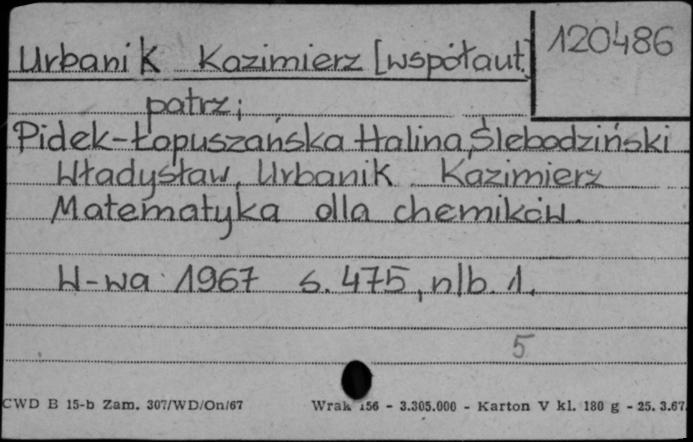 Urbanik Kazimierz [współaut.]
120486
patrz;
Pidek-Łopuszańska Halina, Ślebodziński
Władysław, Urbanik Kazimierz
Matematyka dla chemików.
W-wa 1967 s. 475, nlb. 1.
5
CWD B 15-b Zam. 307/WD/On/67 Wrak 156 - 3.305.000 - Karton V kl. 180 g - 25. 3.67